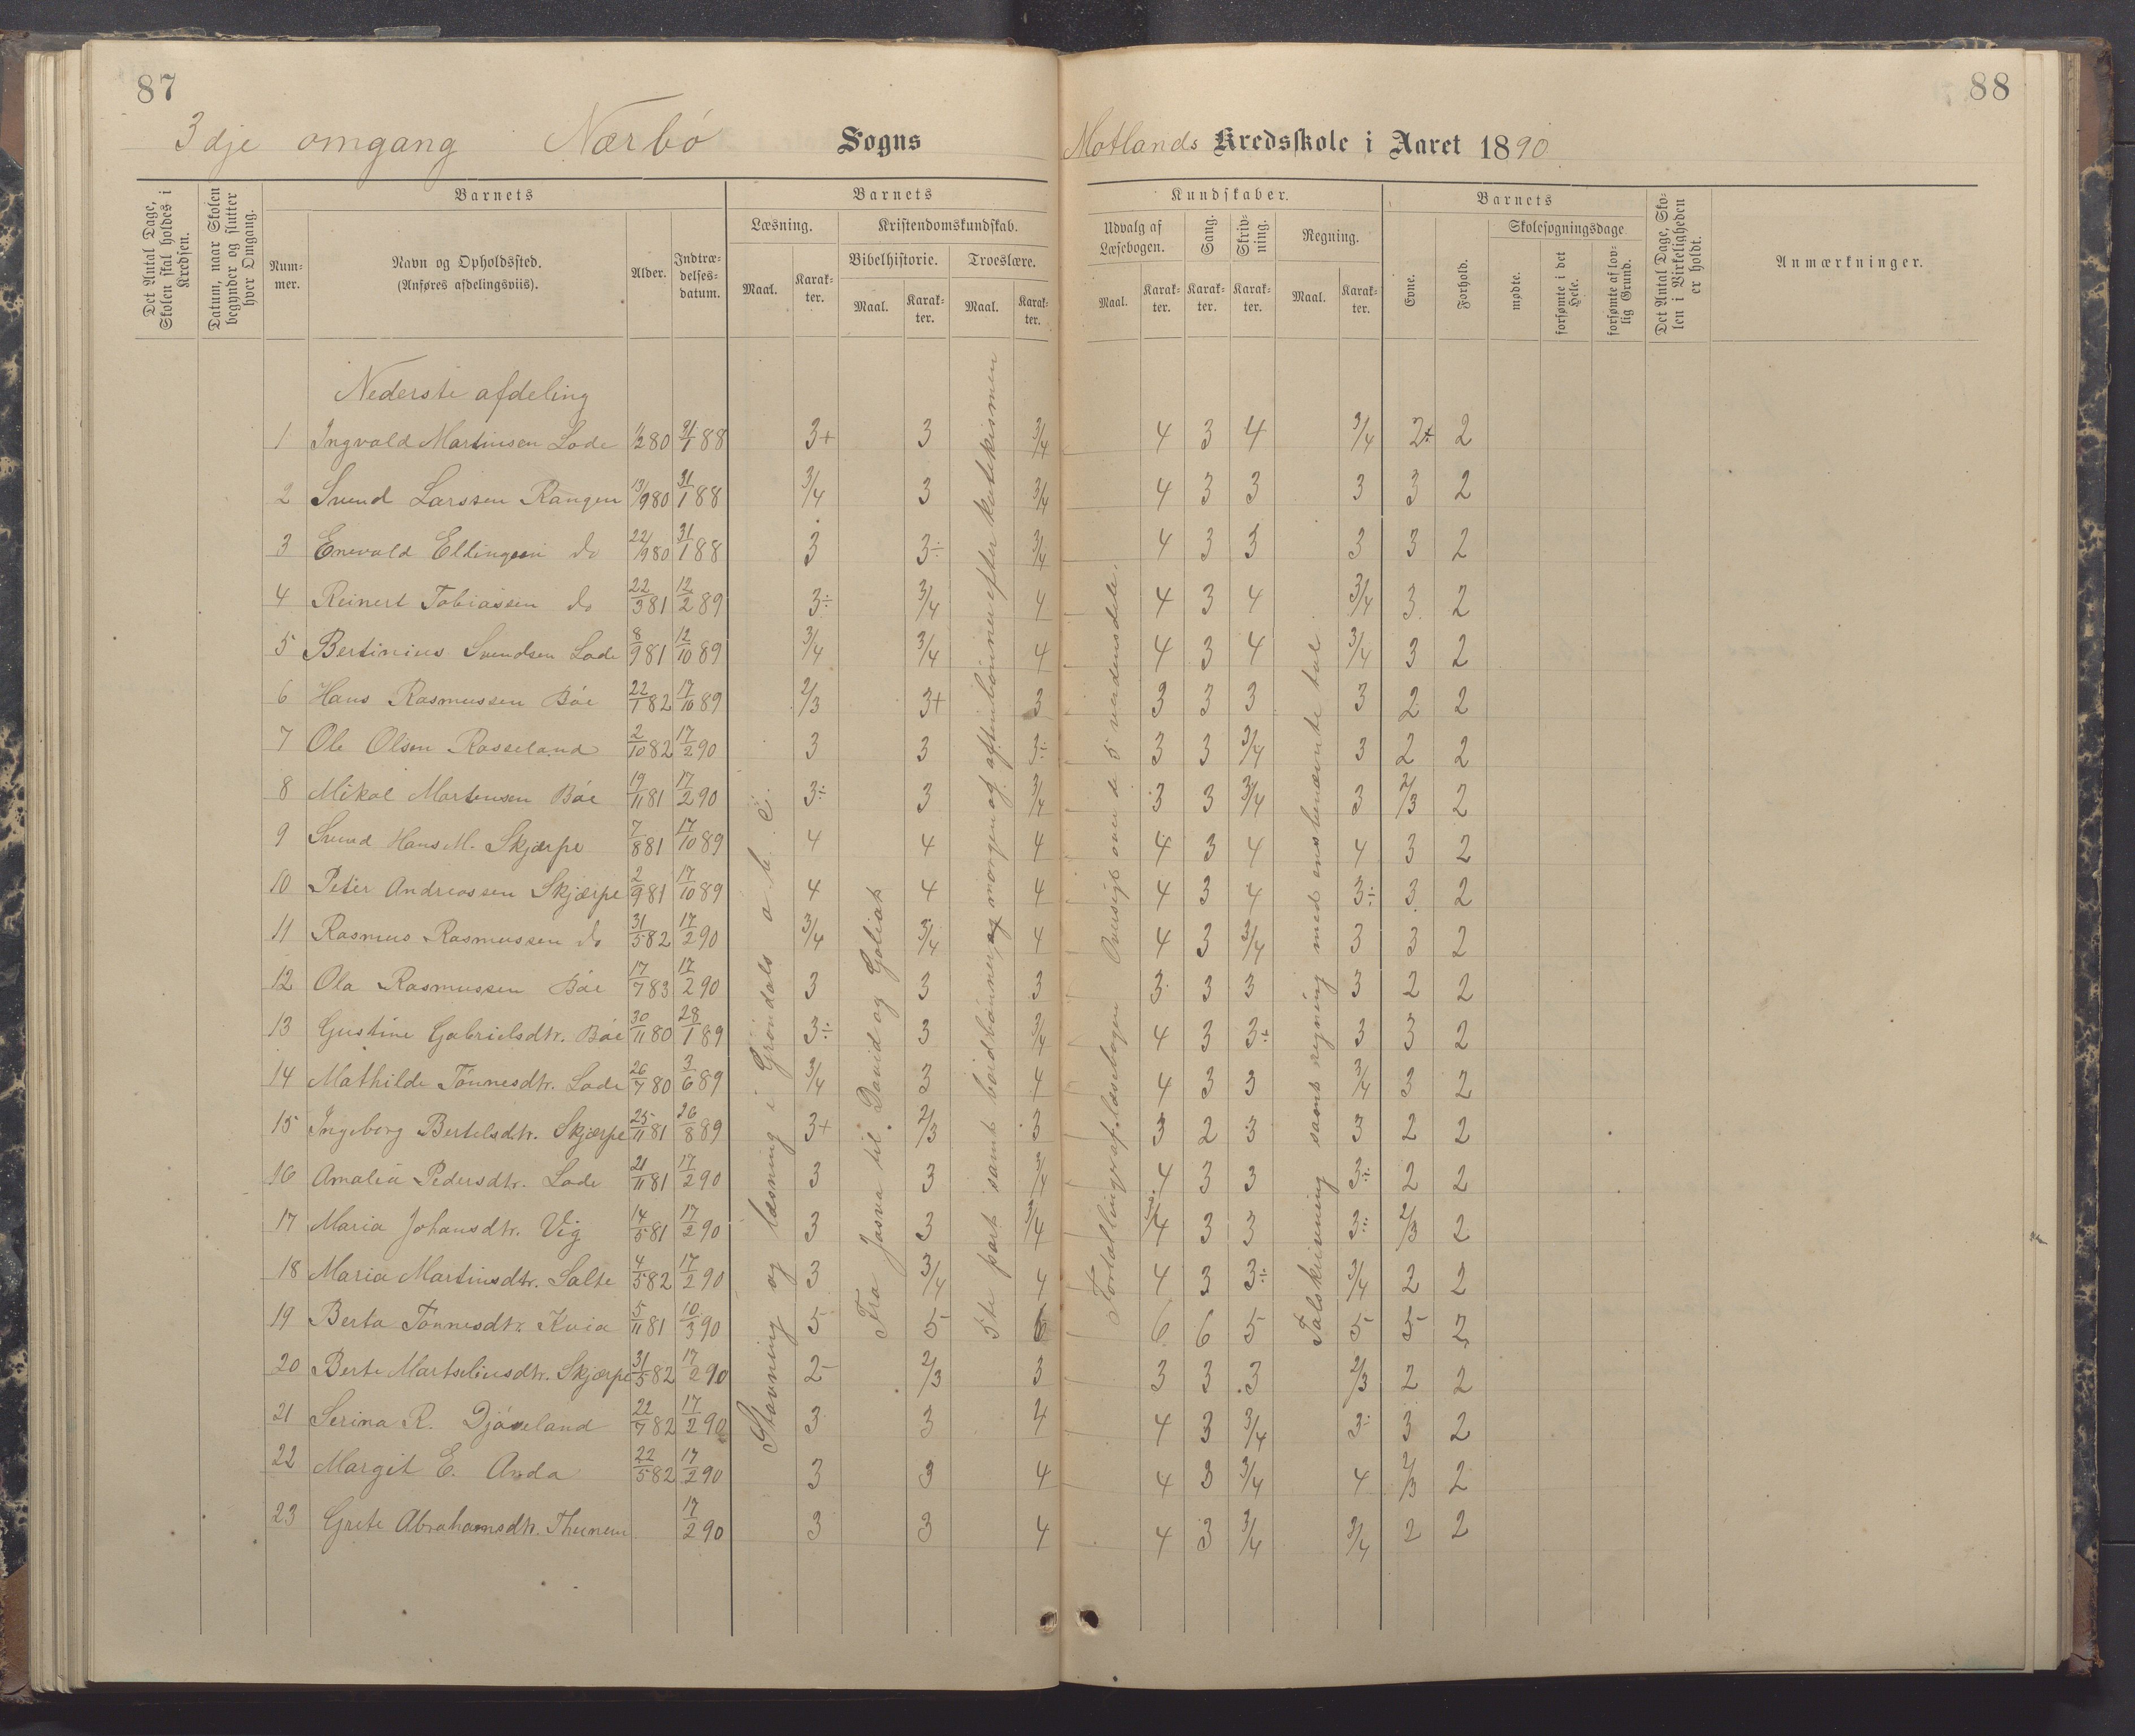 87
88
3dje omgang Nærbó Sogns
Motlands Kredsskole i Aaret 1890
Det Antal Dage, Skolen skal holdes i Kredsen.
Datum, naar Skolen begynder og slutter hver Omgang.
Barnets
Num-
mer.
Navn og Opholdssted.
(Anføres afdelingsviis).
Alder.
Indtræ-
delses-
datum.
Barnets
Læsning.
Maal.
Karak-
ter.
Kristendomskundskab.
Bibelhistorie.
Maal.
Karak-
ter.
Troeslære.
Maal.
Karak-
ter.
Kundskaber.
Udvalg af
Læsebogen.
Maal.
Karak-
ter.
Sang.
Karak-
ter.
Skriv-
ning.
Karak-
ter.
Regning.
Maal.
Karak-
ter.
Barnets
Evne.
Forhold.
Skolesøgningsdage.
mødte.
forsømte i det Hele.
forsømte af lov-
lig Grund.
Det Antal Dage, Sko-
len i Virkeligheden
er holdt.
Anmærkninger.
Nederste afdeling
1 Ingvald Martinsen Lode 1/2 80 31/1 88 3+ 3 3/4 4 3 4 3/4 2+ 2
2 Svend Larssen Rangen 13/9 80 31/1 88 3/4 3 3/4 4 3 3 3 3 2
3 Enevald Ellingsen do 22/9 80 31/1 88 3 3÷ 3/4 4 3 3 3 3 2
4 Reinert Tobiassen do 22/3 81 12/2 89 3÷ 3/4 4 4 3 4 3/4 3 2
5 Bertinius Svendsen Lode 8/9 81 12/10 89 3/4 3/4 4 4 3 4 3/4 3 2
6 Hans Rasmussen Bóe 22/1 82 17/10 89 2/3 3+ 3 3 3 3 3 2 2
7 Ole Olsen Rosseland 2/10 82 17/2 90 3 3 3÷ 3 3 3/4 3 2 2
8 Mikal Martensen Bóe 19/11 81 17/2 90 3÷ 3 3/4 3 3 3/4 3 2/3 2
9 Svend Hans M. Skjærpe 7/8 81 17/10 89 4 4 4 4 3 4 4 3 2
10 Peter Andreassen Skjærpe 2/9 81 17/10 89 4 4 4 4 3 4 3÷ 3 2
11 Rasmus Rasmussen do 31/5 82 17/2 90 3/4 3/4 4 4 3 3/4 3 3 2
12 Ola Rasmussen Bóe 17/7 83 17/2 90 3 3 3 3 3 3 3 2 2
13 Gustine Gabrielsdtr. Bóe 30/11 80 28/1 89 3÷ 3 3/4 4 3 3÷ 3 3 2
14 Mathilde Tónnesdtr. Lode 26/7 80 3/6 89 3/4 3 4 4 3 3 3/4 3 2
15 Ingeborg Bertelsdtr. Skjærpe 25/11 81 26/8 89 3+ 2/3 3 3 2 3 3 2 2
16 Amalia Pedersdtr. Lode 21/11 81 17/2 90 3 3 3/4 4 3 3 3÷ 2 2
17 Maria Johansdtr. Vig 14/5 81 17/2 90 3 3 3/4 3/4 3 3 3÷ 2/3 2
18 Maria Martinsdtr. Salte 4/5 82 17/2 90 3 3/4 4 4 3 3÷ 3/4 2 2
19 Berta Tónnesdtr. Kvia 5/11 81 10/3 90 5 5 6 6 6 5 5 5 2
20 Berte Martseliusdtr. Skjærpe 31/5 82 17/2 90 2- 2/3 3 3 3 3 2/3 2 2
21 Serina R. Djóseland 22/7 82 17/2 90 3 3 4 4 3 3/4 3÷ 3 2
22 Margit E. Anda 22/5 82 17/2 90 3 3 4 4 3 3/4 4 2/3 2
23 Grete Abrahamsdtr. Thunem 17/2 90 3 3 4 4 3 3/4 3/4 2 2
Stavning og læsning i Gróndals a b c.
Fra Josva til David og Goliat
5te part samt bordbónner og morgen og aftenbónner efter katekismen
Fortælling af læsebogen Oversigt over de 5 verdensdele.
Talskrivning samt regning med ensbenævnte tal